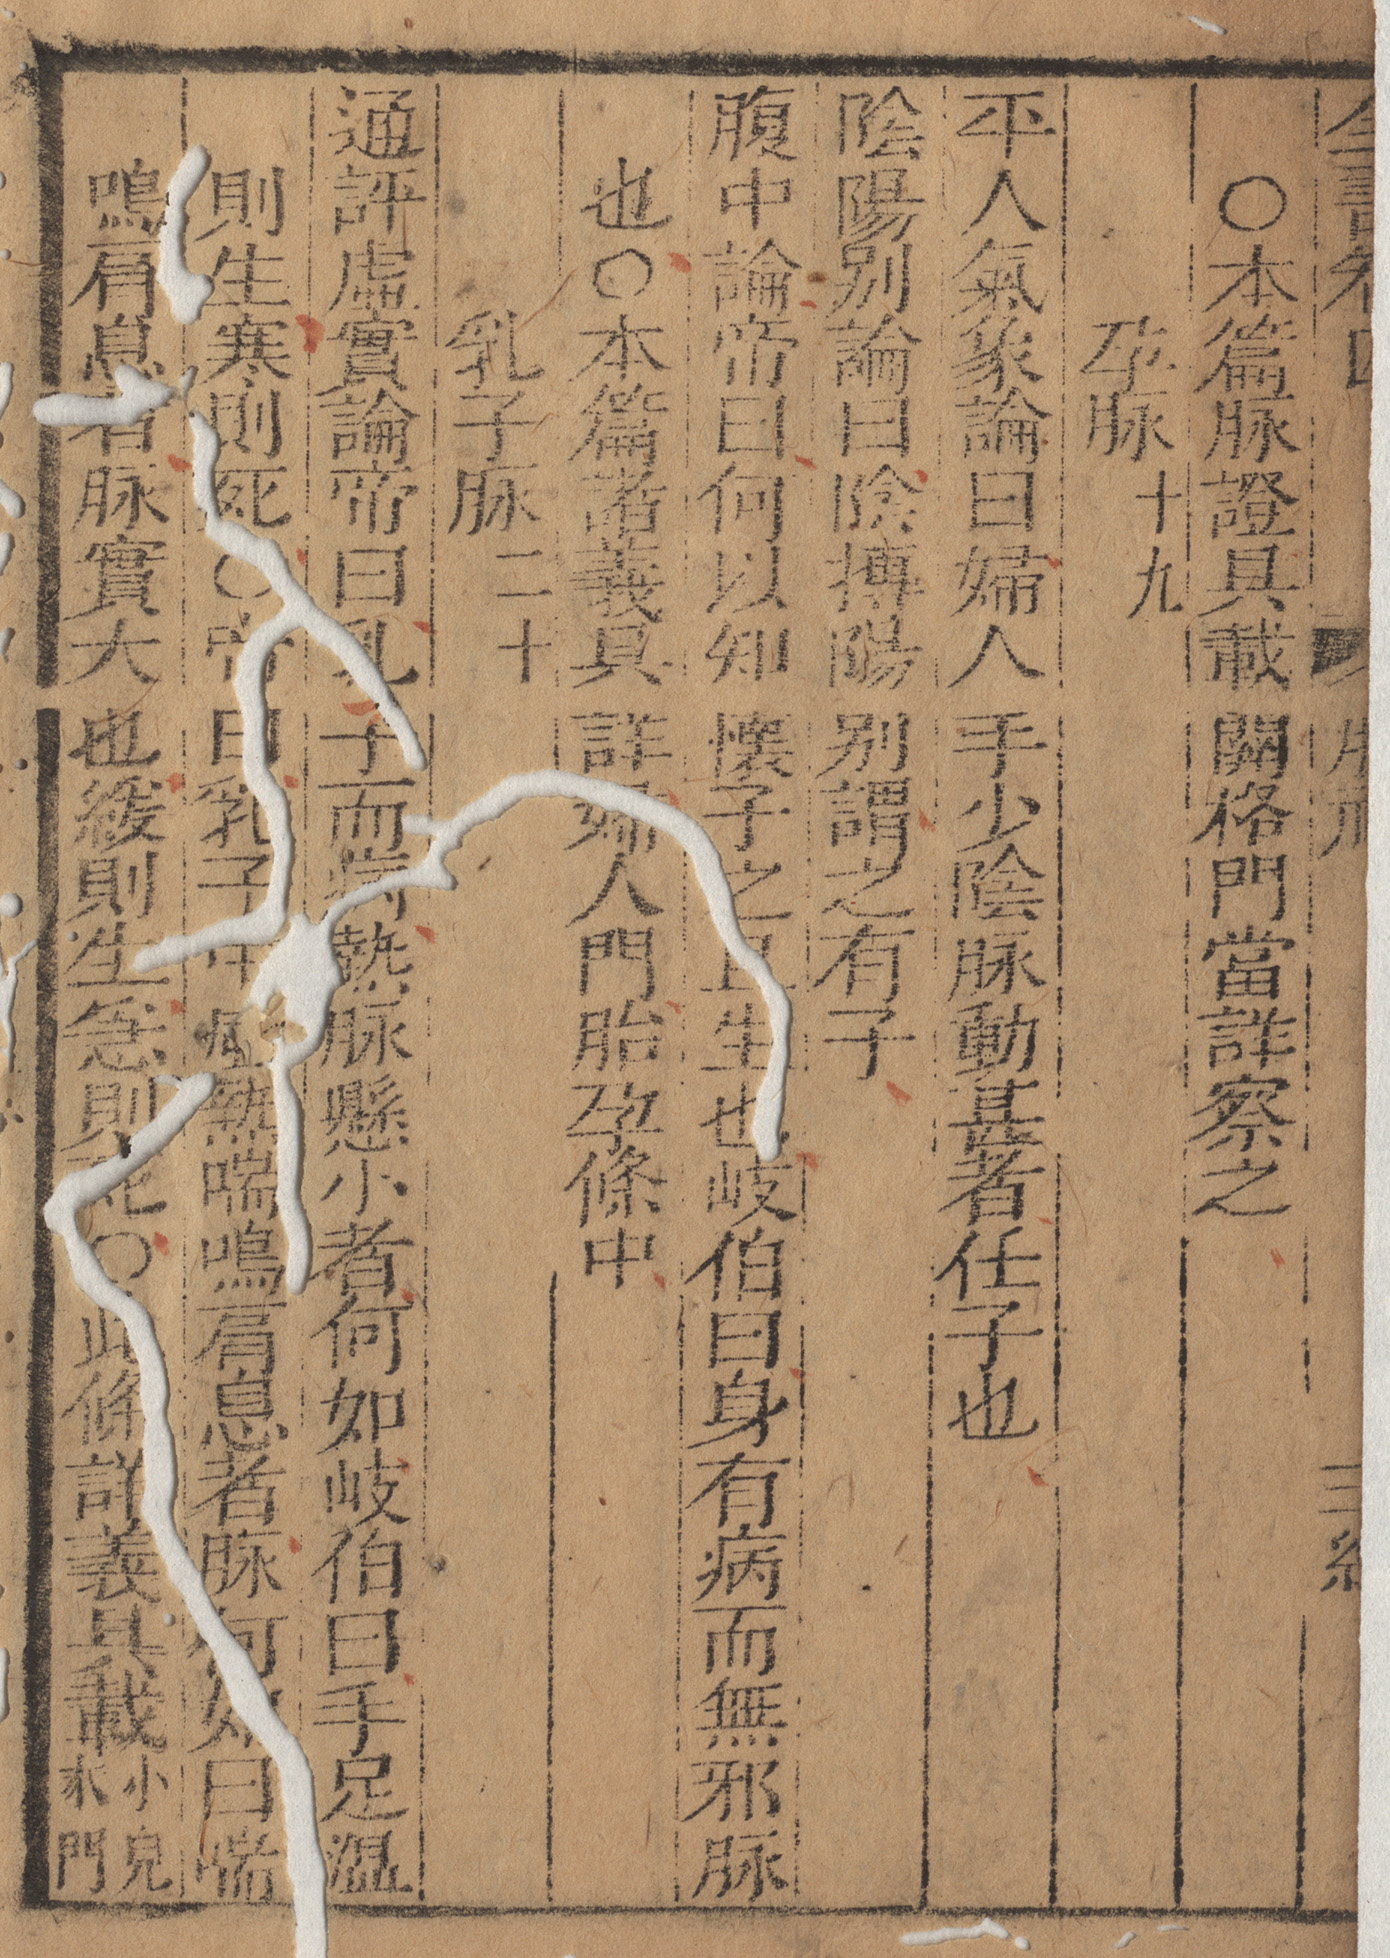 ○本篇脉證具載關格門當詳察之
孕脉十九
平人氣象論曰婦人手少陰脉動甚者任子也
陰陽別論曰陰搏陽別謂之有子
腹中論帝曰何以知懷子之且生也岐伯曰身有病而無邪脉
也○本篇諸義具詳婦人門胎孕條中
乳子脉二十
通評虛實論帝曰乳子而病熱脉懸小者何如岐伯曰手足溫
則生寒則死○帝曰乳子中風熱喘鳴肩息者脉何如曰喘
鳴肩息者脉實大也緩則生急則死○此條詳義具載小兒
門